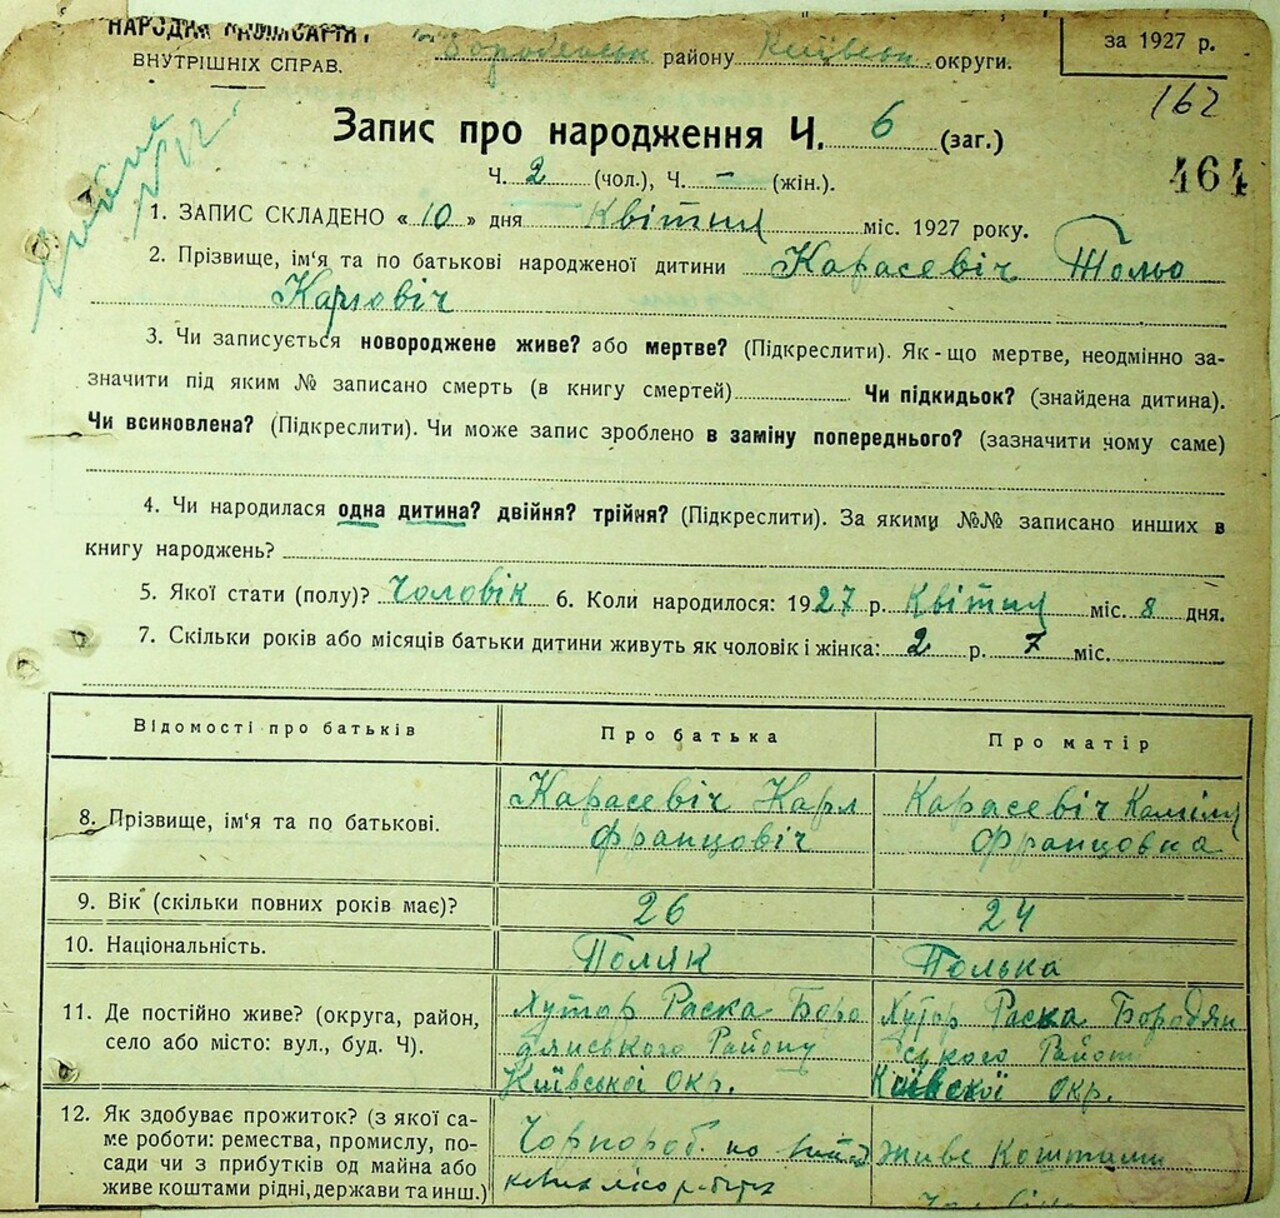 ВНУТРІШНІХ СПРАВ.
району Київськ округи.
за 1927 р.
162
Запис про народження Ч. 6 (заг.)
464
Ч. 2 (чол.), Ч. – (жін.).
1. ЗАПИС СКЛАДЕНО « 10 » дня Квітня міс. 1927 року.
2. Прізвище, ім'я та по батькові народженої дитини Карасевіч Тольо
Карловіч
3. Чи записується новороджене живе? або мертве? (Підкреслити). Як-що мертве, неодмінно за-
значити під яким № записано смерть (в книгу смертей) Чи підкидьок? (знайдена дитина).
Чи всиновлена? (Підкреслити). Чи може запис зроблено в заміну попереднього? (зазначити чому саме)
4. Чи народилася одна дитина? двійня? трійня? (Підкреслити). За якими №№ записано инших в
книгу народжень?
5. Якої стати (полу)? Чоловік 6. Коли народилося: 1927 р. Квітня міс. 8 дня.
7. Скільки років або місяців батьки дитини живуть як чоловік і жінка: 2 р. 7 міс.
Відомості про батьків
Про батька
Про матір
8. Прізвище, ім'я та по батькові.
Карасевіч Карл
Францовіч
Карасевіч Каміля
Францовна
9. Вік (скільки повних років має)?
26
24
10. Національність.
Поляк
Полька
11. Де постійно живе? (округа, район,
село або місто: вул., буд. Ч).
Хутор Раска Боро
дянського Району
Київської Окр.
Хутор Раска Бородян
ського Район
Київскої Окр.
12. Як здобуває прожиток? (з якої са-
ме роботи: ремества, промислу, по-
сади чи з прибутків од майна або
живе коштами рідні, держави та инш.)
Чорнороб. по
живе коштами